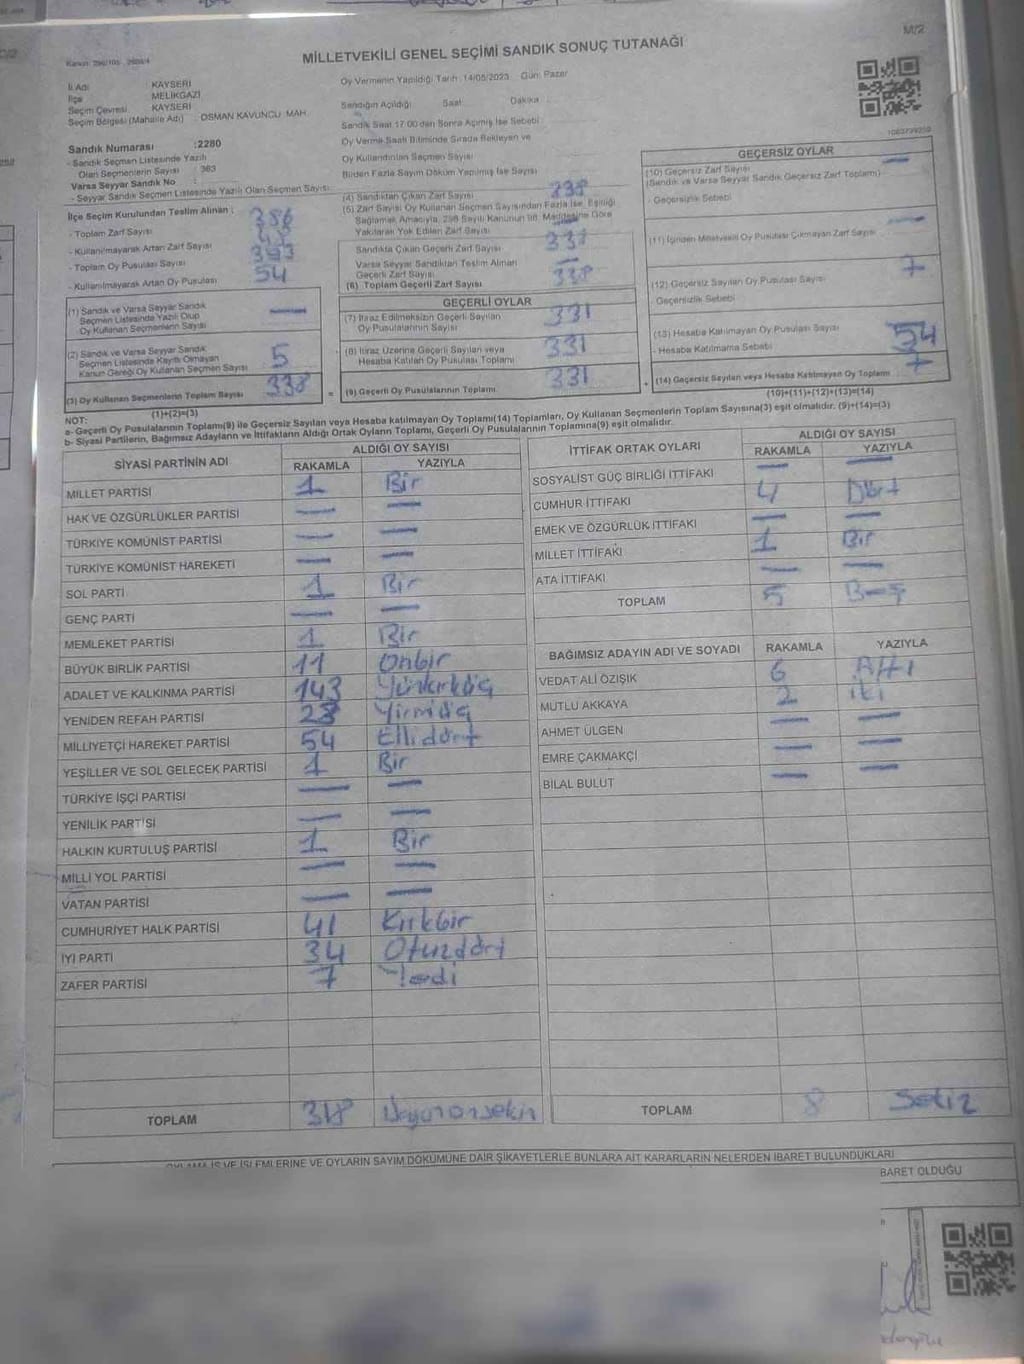 M/2
MİLLETVEKİLİ GENEL SEÇİMİ SANDIK SONUÇ TUTANAĞI
İl Adı KAYSERİ
İlçe MELİKGAZİ
Seçim Çevresi KAYSERİ
Seçim Bölgesi (Mahalle Adı) OSMAN KAVUNCU MAH.
Sandık Numarası :2280
- Sandık Seçmen Listesinde Yazılı
Olan Seçmenlerin Sayısı : 363
Varsa Seyyar Sandık No :
- Seyyar Sandık Seçmen Listesinde Yazılı Olan Seçmen Sayısı
Oy Vermenin Yapıldığı Tarih : 14/05/2023 Gün: Pazar
Sandığın Açıldığı Saat Dakika
Sandık Saat 17:00'den Sonra Açılmış İse Sebebi
Oy Verme Saati Bitiminde Sırada Bekleyen ve
Oy Kullandırılan Seçmen Sayısı
Birden Fazla Sayım Döküm Yapılmış İse Sayısı
İlçe Seçim Kurulundan Teslim Alınan :
- Toplam Zarf Sayısı 386
- Kullanılmayarak Artan Zarf Sayısı
- Toplam Oy Pusulası Sayısı
- Kullanılmayarak Artan Oy Pusulası 54
(1) Sandık ve Varsa Seyyar Sandık
Seçmen Listesinde Yazılı Olup
Oy Kullanan Seçmenlerin Sayısı —
(2) Sandık ve Varsa Seyyar Sandık
Seçmen Listesinde Kayıtlı Olmayan
Kanun Gereği Oy Kullanan Seçmen Sayısı 5
(3) Oy Kullanan Seçmenlerin Toplam Sayısı 338
(1)+(2)=(3)
(4) Sandıktan Çıkan Zarf Sayısı 338
(5) Zarf Sayısı Oy Kullanan Seçmen Sayısından Fazla İse, Eşitliği
Sağlamak Amacıyla, 298 Sayılı Kanunun 98. Maddesine Göre
Yakılarak Yok Edilen Zarf Sayısı
Sandıkta Çıkan Geçerli Zarf Sayısı 338
Varsa Seyyar Sandıktan Teslim Alınan
Geçerli Zarf Sayısı —
(6) Toplam Geçerli Zarf Sayısı 338
GEÇERLİ OYLAR
(7) İtiraz Edilmeksizin Geçerli Sayılan
Oy Pusulalarının Sayısı 331
(8) İtiraz Üzerine Geçerli Sayılan veya
Hesaba Katılan Oy Pusulası Toplamı 331
(9) Geçerli Oy Pusulalarının Toplamı 331
GEÇERSİZ OYLAR
(10) Geçersiz Zarf Sayısı —
(Sandık ve Varsa Seyyar Sandık Geçersiz Zarf Toplamı)
- Geçersizlik Sebebi
(11) İçinden Milletvekili Oy Pusulası Çıkmayan Zarf Sayısı —
(12) Geçersiz Sayılan Oy Pusulası Sayısı 7
Geçersizlik Sebebi
(13) Hesaba Katılmayan Oy Pusulası Sayısı 54
- Hesaba Katılmama Sebebi
(14) Geçersiz Sayılan veya Hesaba Katılmayan Oy Toplamı 7
(10)+(11)+(12)+(13)=(14)
NOT:
a- Geçerli Oy Pusulalarının Toplamı(9) ile Geçersiz Sayılan veya Hesaba katılmayan Oy Toplamı(14) Toplamları, Oy Kullanan Seçmenlerin Toplam Sayısına(3) eşit olmalıdır. (9)+(14)=(3)
b- Siyasi Partilerin, Bağımsız Adayların ve İttifakların Aldığı Ortak Oyların Toplamı, Geçerli Oy Pusulalarının Toplamına(9) eşit olmalıdır.
SİYASİ PARTİNİN ADI ALDIĞI OY SAYISI
RAKAMLA YAZIYLA
MİLLET PARTİSİ 1 Bir
HAK VE ÖZGÜRLÜKLER PARTİSİ — —
TÜRKİYE KOMÜNİST PARTİSİ — —
TÜRKİYE KOMÜNİST HAREKETİ — —
SOL PARTİ 1 Bir
GENÇ PARTİ — —
MEMLEKET PARTİSİ 1 Bir
BÜYÜK BİRLİK PARTİSİ 11 Onbir
ADALET VE KALKINMA PARTİSİ 143 Yüzkırküç
YENİDEN REFAH PARTİSİ 23 Yirmiüç
MİLLİYETÇİ HAREKET PARTİSİ 54 Ellidört
YEŞİLLER VE SOL GELECEK PARTİSİ 1 Bir
TÜRKİYE İŞÇİ PARTİSİ — —
YENİLİK PARTİSİ — —
HALKIN KURTULUŞ PARTİSİ 1 Bir
MİLLİ YOL PARTİSİ — —
VATAN PARTİSİ — —
CUMHURİYET HALK PARTİSİ 41 Kırkbir
İYİ PARTİ 34 Otuzdört
ZAFER PARTİSİ 7 Yedi
TOPLAM 318 Üçyüzonsekiz
İTTİFAK ORTAK OYLARI ALDIĞI OY SAYISI
RAKAMLA YAZIYLA
SOSYALİST GÜÇ BİRLİĞİ İTTİFAKI — —
CUMHUR İTTİFAKI 4 Dört
EMEK VE ÖZGÜRLÜK İTTİFAKI — —
MİLLET İTTİFAKI 1 Bir
ATA İTTİFAKI — —
TOPLAM 5 Beş
BAĞIMSIZ ADAYIN ADI VE SOYADI RAKAMLA YAZIYLA
VEDAT ALİ ÖZIŞIK 6 Altı
MUTLU AKKAYA 2 iki
AHMET ÜLGEN — —
EMRE ÇAKMAKÇİ — —
BİLAL BULUT — —
TOPLAM 8 Sekiz
İŞ VE İŞLEMLERİNE VE OYLARIN SAYIM DÖKÜMÜNE DAİR ŞİKAYETLERLE BUNLARA AİT KARARLARIN NELERDEN İBARET BULUNDUKLARI
BARET OLDUĞU